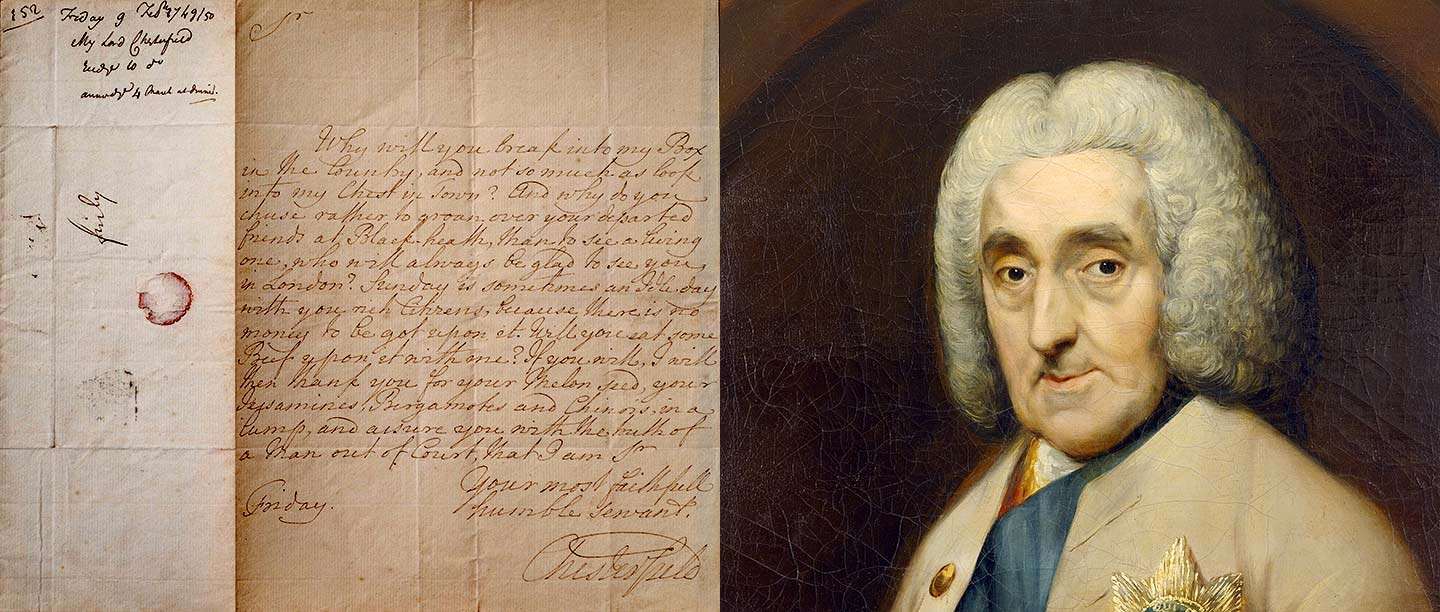 152
Friday 9 Feb. 1749/50
My Lord Chesterfield
Answd. 4
Sr
Why will you break into my Box
in the Country, and not so much as look
into my Chest in Town? And why do you
chuse rather to groan over your departed
friends at Black-heath, than to see a living
one, who will always be glad to see you
in London? Sunday is sometimes an Idle day
with you rich Citizens, because there is no
money to be got upon it. Will you eat some
Beef upon it with me? If you will, I will
then thank you for your Melon seed, your
Jessamines, Bergamotes and Chinois, in a
lump, and assure you with the truth of
a Man out of Court, that I am Sr
Your most faithfull
Friday. humble servant.
Chesterfield